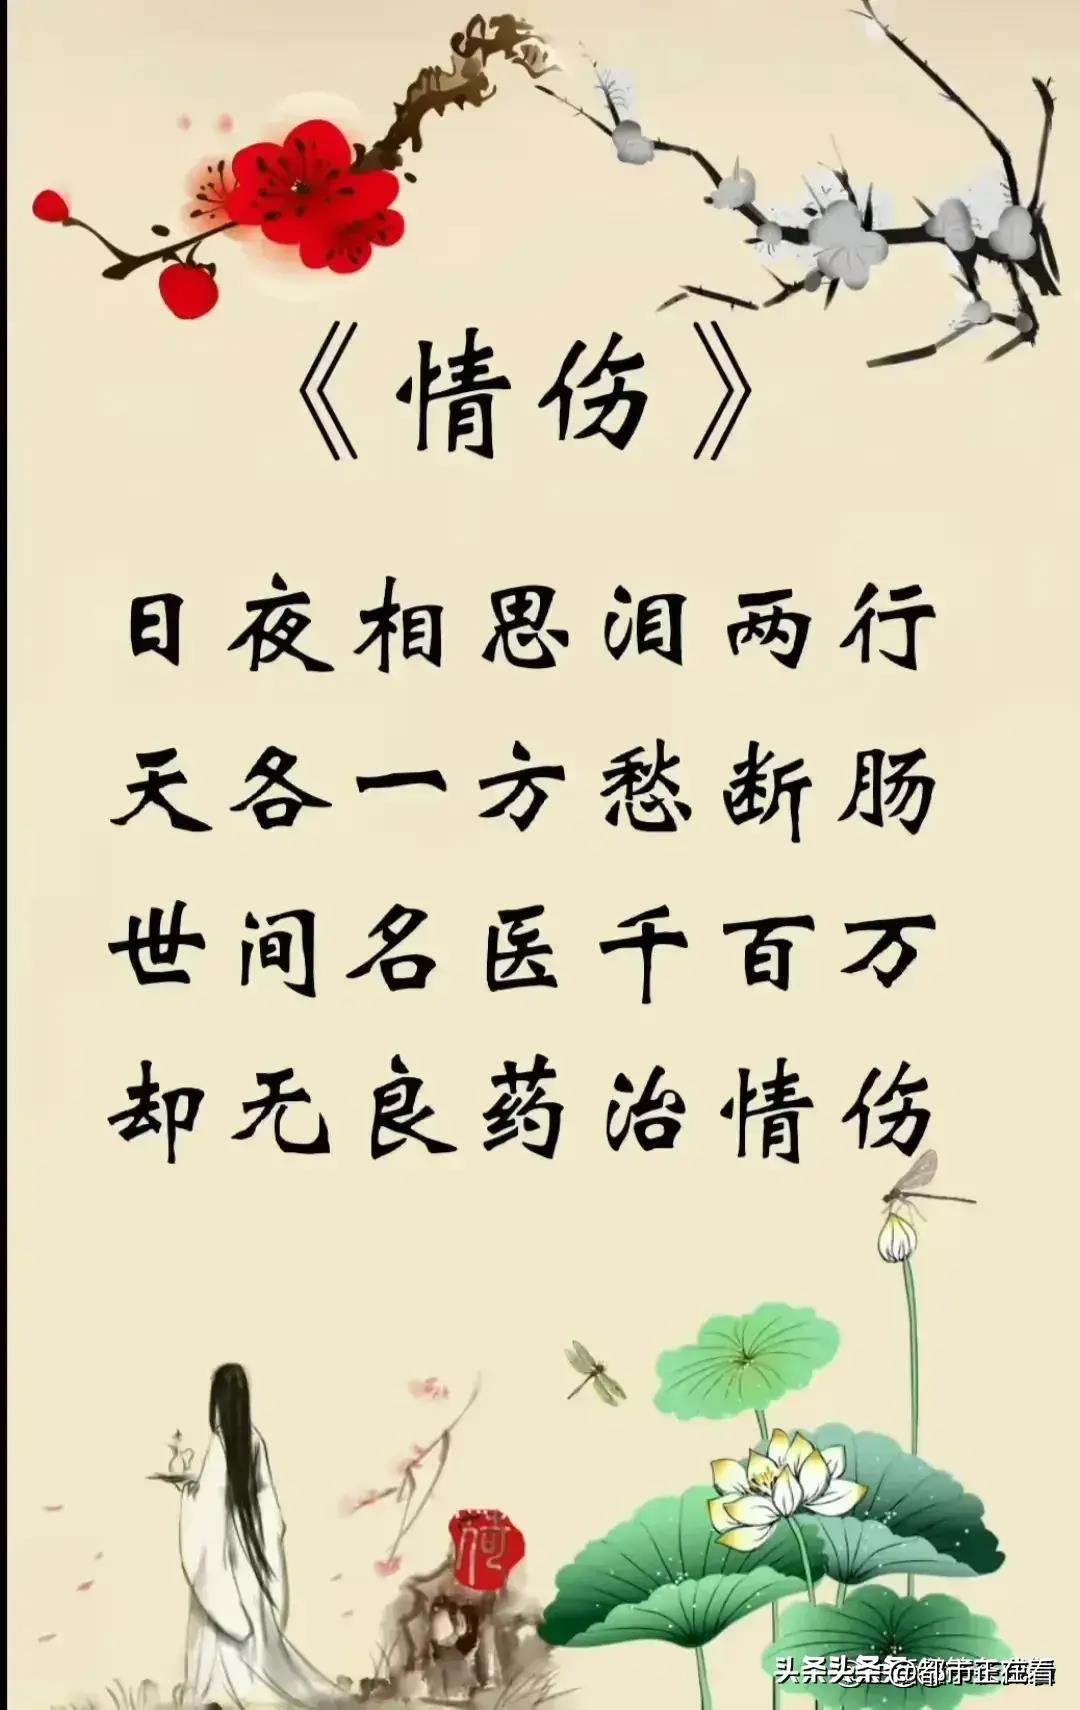 《情伤》
日夜相思泪两行
天各一方愁断肠
世间名医千百万
却无良药治情伤
荷
头条头条号@都市正在看